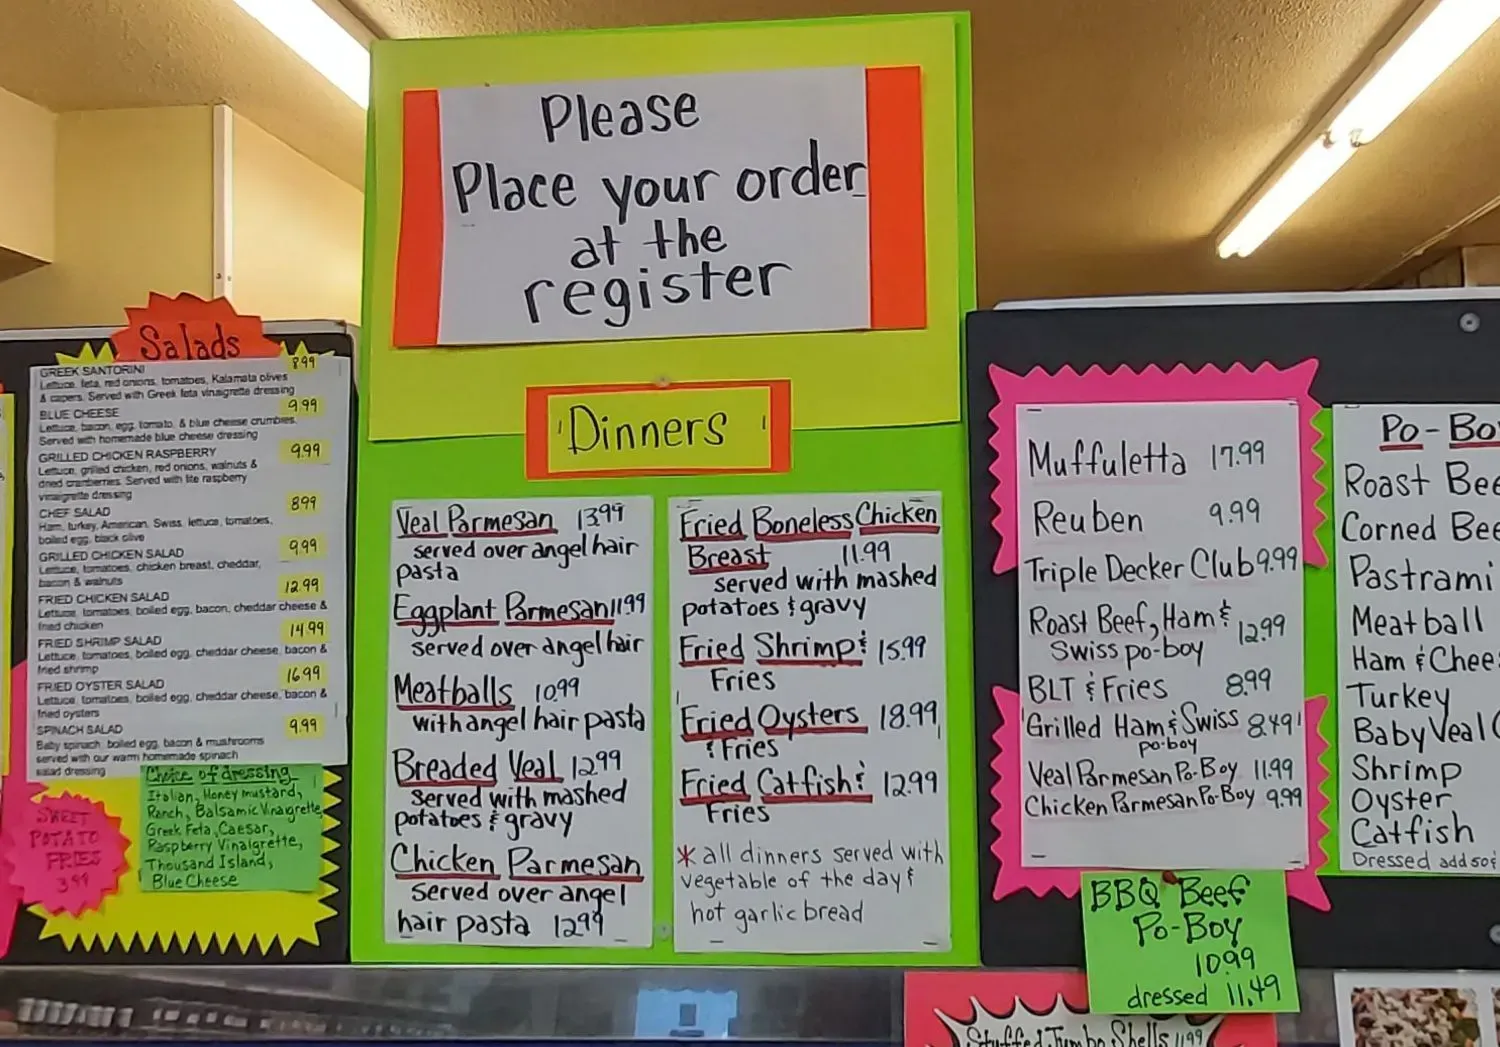 Please
Place your order
at the
register
Salads
GREEK SANTORINI 8.99
Lettuce, feta, red onions, tomatoes, Kalamata olives
& capers. Served with Greek feta vinaigrette dressing
BLUE CHEESE 9.99
Lettuce, bacon, egg, tomato, & blue cheese crumbles.
Served with homemade blue cheese dressing
GRILLED CHICKEN RASPBERRY 9.99
Lettuce, grilled chicken, red onions, walnuts &
dried cranberries. Served with lite raspberry
vinaigrette dressing
CHEF SALAD 8.99
Ham, turkey, American, Swiss, lettuce, tomatoes,
boiled egg, black olive
GRILLED CHICKEN SALAD 9.99
Lettuce, tomatoes, chicken breast, cheddar,
bacon & walnuts
FRIED CHICKEN SALAD 12.99
Lettuce, tomatoes, boiled egg, bacon, cheddar cheese &
fried chicken
FRIED SHRIMP SALAD 14.99
Lettuce, tomatoes, boiled egg, cheddar cheese, bacon &
fried shrimp
FRIED OYSTER SALAD 16.99
Lettuce, tomatoes, boiled egg, cheddar cheese, bacon &
fried oysters
SPINACH SALAD 9.99
Baby spinach, boiled egg, bacon & mushrooms
served with our warm homemade spinach
salad dressing
Choice of dressing
Italian, Honey mustard,
Ranch, Balsamic Vinaigrette,
Greek Feta, Caesar,
Raspberry Vinaigrette,
Thousand Island,
Blue Cheese
SWEET
POTATO
FRIES
3.99
Dinners
Veal Parmesan 13.99
served over angel hair
pasta
Eggplant Parmesan 11.99
served over angel hair
Meatballs 10.99
with angel hair pasta
Breaded Veal 12.99
served with mashed
potatoes & gravy
Chicken Parmesan
served over angel
hair pasta 12.99
Fried Boneless Chicken
Breast 11.99
served with mashed
potatoes & gravy
Fried Shrimp & 15.99
Fries
Fried Oysters 18.99
& Fries
Fried Catfish & 12.99
Fries
* all dinners served with
vegetable of the day &
hot garlic bread
Muffuletta 17.99
Reuben 9.99
Triple Decker Club 9.99
Roast Beef, Ham & 12.99
Swiss po-boy
BLT & Fries 8.99
Grilled Ham & Swiss 8.49
po-boy
Veal Parmesan Po-Boy 11.99
Chicken Parmesan Po-Boy 9.99
BBQ Beef
Po-Boy
10.99
dressed 11.49
Stuffed Jumbo Shells 11.99
Po-Bo
Roast Bee
Corned Bee
Pastrami
Meatball
Ham & Chee
Turkey
Baby Veal
Shrimp
Oyster
Catfish
Dressed add 50¢